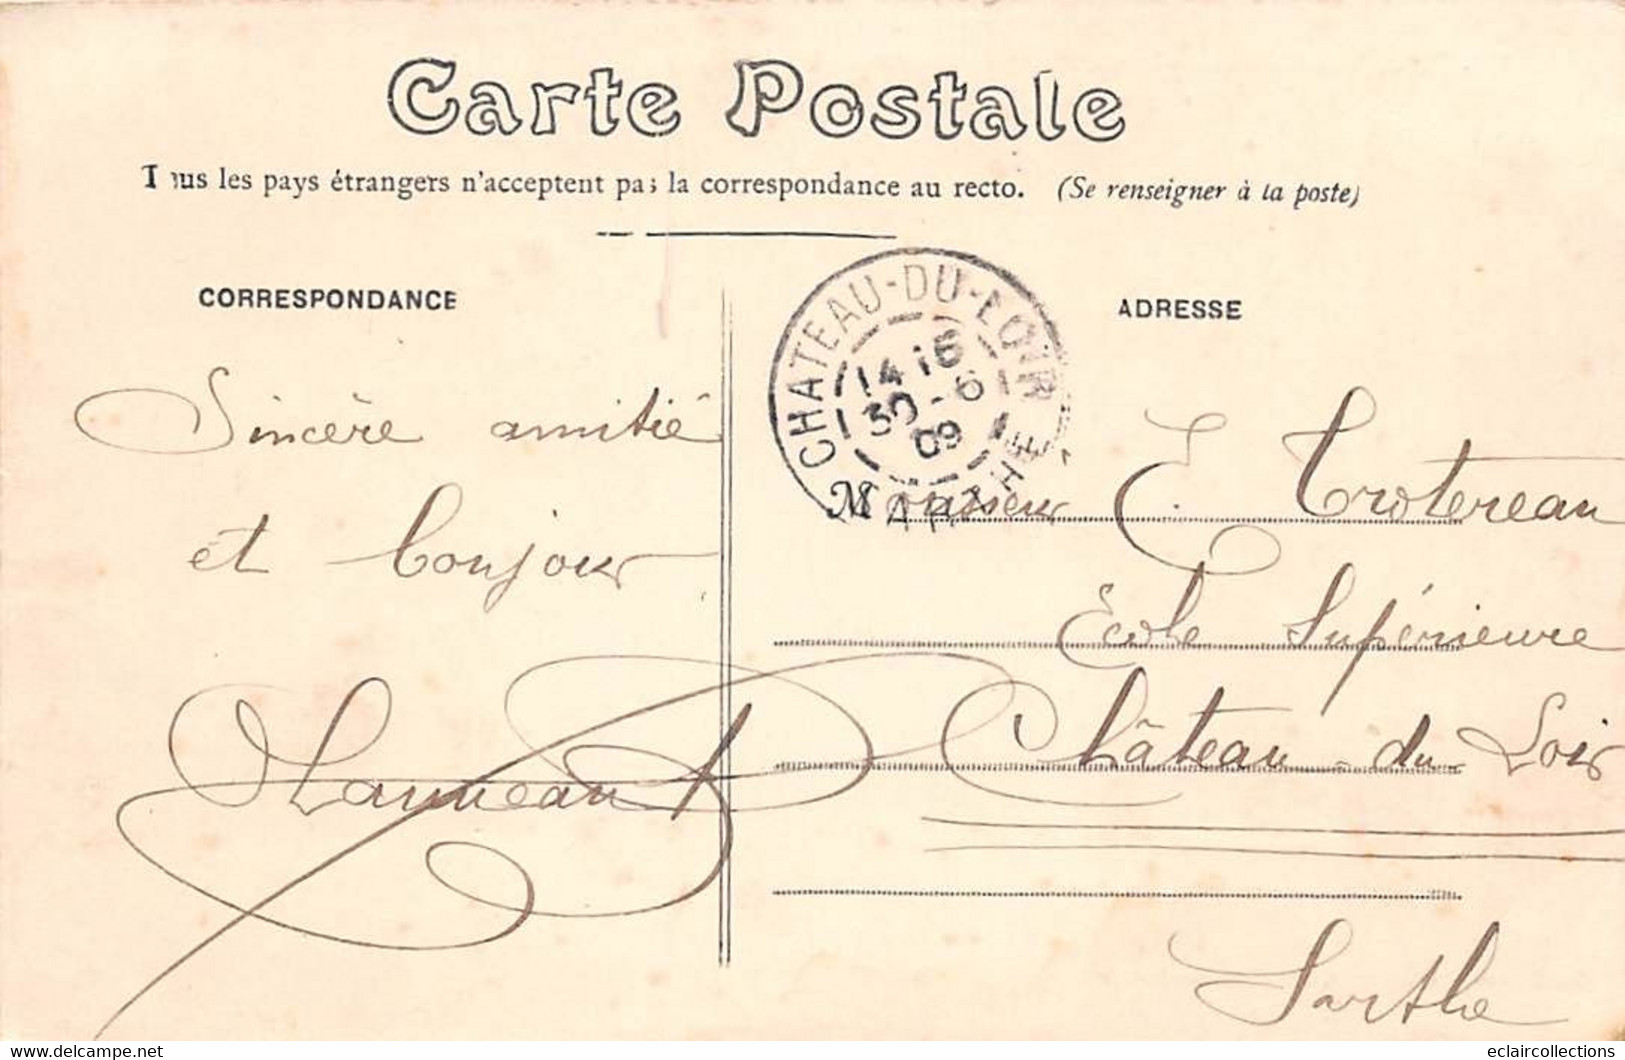 Carte Postale
Tous les pays étrangers n'acceptent pas la correspondance au recto. (Se renseigner à la poste)
CORRESPONDANCE
ADRESSE
CHATEAU-DU-LOIR
14 15
30-6
09
SARTHE
Sincère amitié
et bonjour
Monsieur E. Trotereau
Ecole Supérieure
Château-du-Loir
Sarthe
eclaircollections